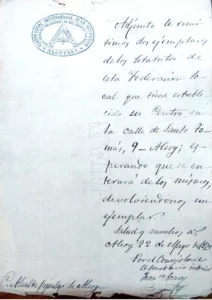 ALCOYANA
Adjunto le remi-
timos dos ejemplares
de los Estatutos de
esta Federacion lo-
cal que tiene estable-
cido su Centro en
la calle de Santo To-
más, 9 - Alcoy; es-
perando que se en-
terará de los mismos,
devolviendonos un
ejemplar.
Salud y
Alcoy 22 de Mayo de
Por el Consejo local
El Secretario
C. Alcalde popular de Alcoy